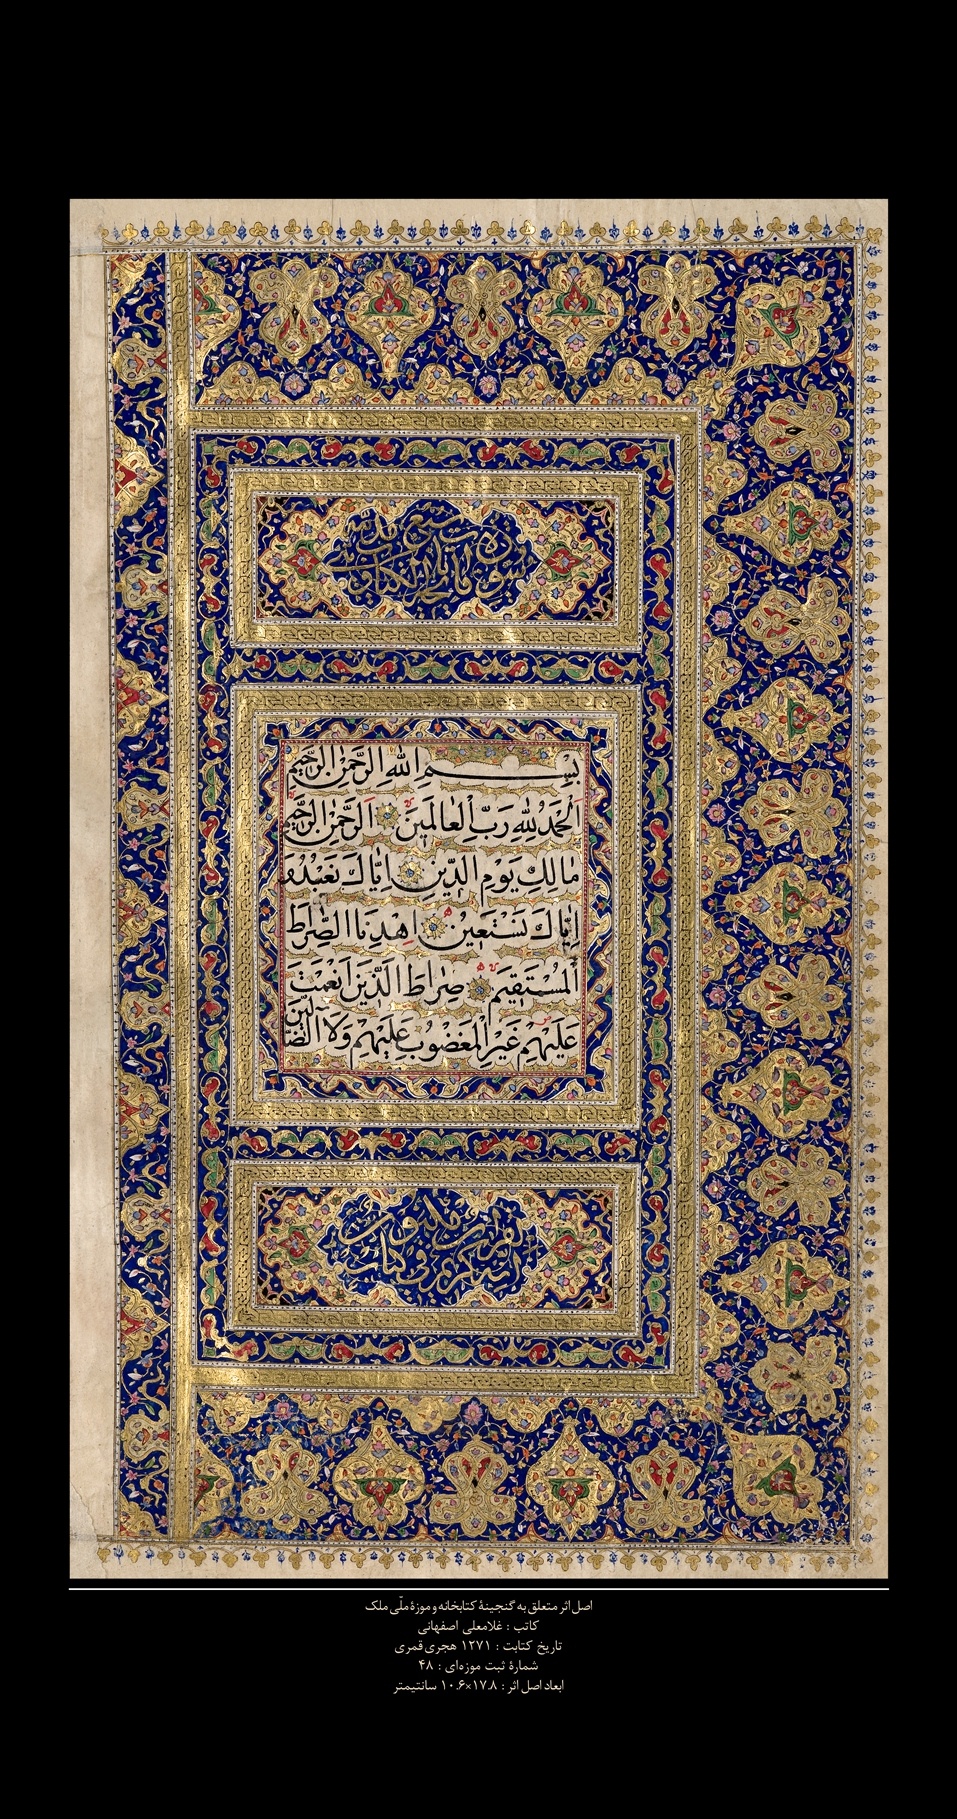 سورة فاتحة الكتاب سبع آيات
بِسْمِ اللهِ الرَّحْمٰنِ الرَّحيمِ
اَلْحَمْدُ لِلّٰهِ رَبِّ الْعٰالَمينَ اَلرَّحْمٰنِ الرَّحيمِ
مٰالِكِ يَوْمِ الدّينِ اِيّٰاكَ نَعْبُدُ وَ
اِيّٰاكَ نَسْتَعينُ اِهْدِنَا الصِّرٰاطَ
الْمُسْتَقيمَ صِرٰاطَ الَّذينَ اَنْعَمْتَ
عَلَيْهِمْ غَيْرِ الْمَغْضُوبِ عَلَيْهِمْ وَلَا الضّٰالّينَ
انه لقرآن كريم في كتاب مكنون
اصل اثر متعلق به گنجینهٔ کتابخانه و موزهٔ ملّی ملک
کاتب : غلامعلی اصفهانی
تاریخ کتابت : ۱۲۷۱ هجری قمری
شمارهٔ ثبت موزه‌ای : ۴۸
ابعاد اصل اثر : ۱۷.۸×۱۰.۶ سانتیمتر